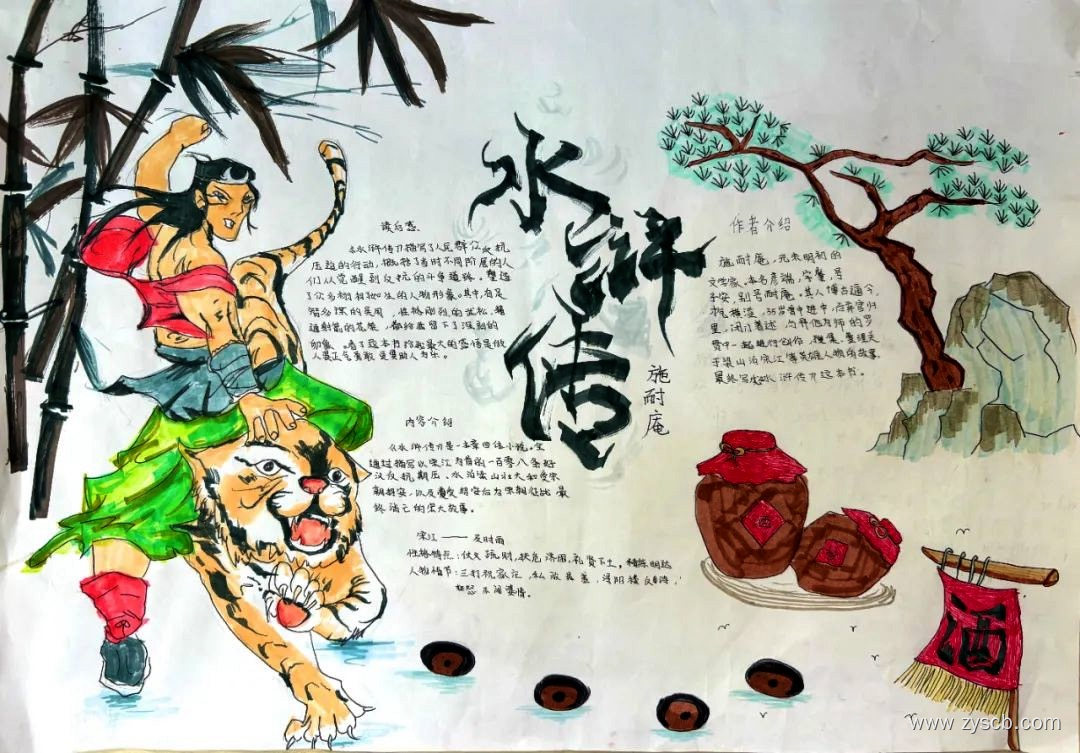 水浒传
施耐庵
读后感
《水浒传》描写了人民群众反抗
压迫的行动，概括了当时不同阶层的人
们从觉醒到反抗的斗争道路，塑造
了众多栩栩如生的人物形象。其中，有足
智多谋的吴用，性格刚烈的武松，精
通射箭的花荣，都给我留下了深刻的
印象。看了这本书给我最大的感悟是做
人要正气勇敢更要助人为乐。
作者介绍
施耐庵，元末明初的
文学家，本名彦端，字肇瑞，号
子安，别号耐庵。其人博古通今，
才气横溢，35岁曾中进士，后弃官归
里，闭门著述，与拜他为师的罗
贯中一起进行创作，搜集、整理关
于梁山泊宋江等英雄人物的故事，
最终写成《水浒传》这本书。
内容介绍
《水浒传》是一章回体小说。它
通过描写以宋江为首的一百零八条好
汉反抗欺压、水泊梁山壮大和受宋
朝招安，以及受招安后为宋朝征战，最
终消亡的宏大故事。
宋江——及时雨
性格特征：仗义疏财，扶危济困，礼贤下士，精练明达
人物情节：三打祝家庄，私放晁盖，浔阳楼
怒杀阎婆惜。
酒
www.zyscb.com